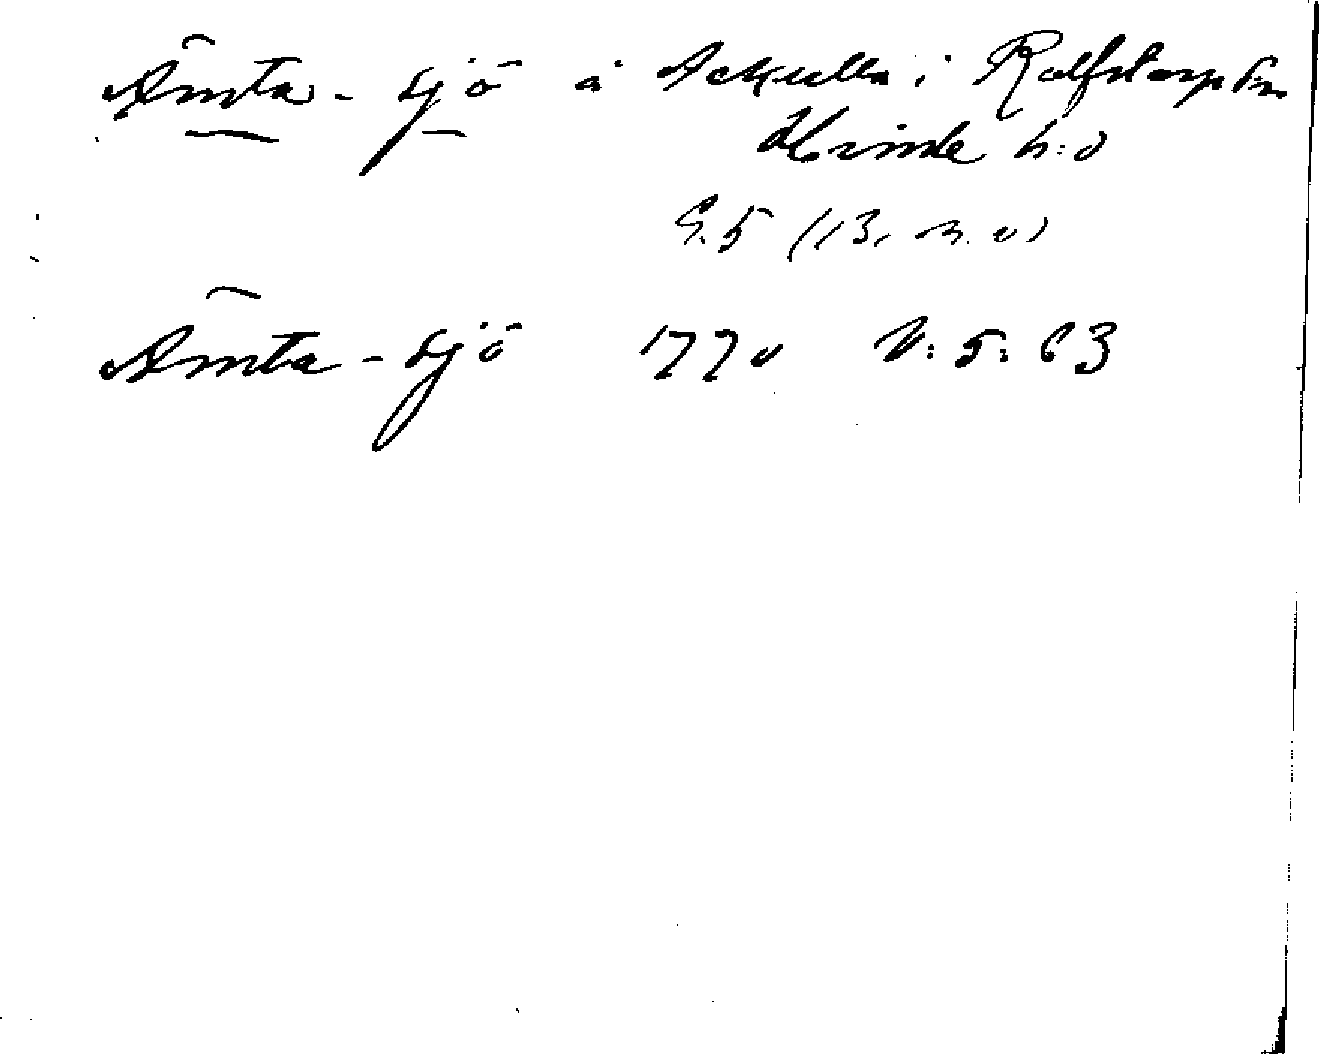 Ämta-sjö å Ackulla i Rolfstorp sn
Himle h:d
G. 5 (13, n. v)
Ämta-sjö 1770 N:5:63